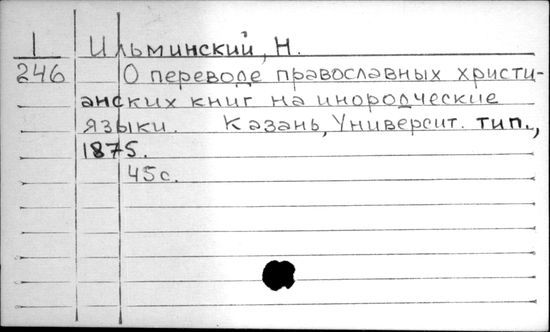 I Ильминский, Н.
246 О переводе православных христи-
анских книг на инородческие
языки. Казань, Университ. тип.,
1875.
45с.